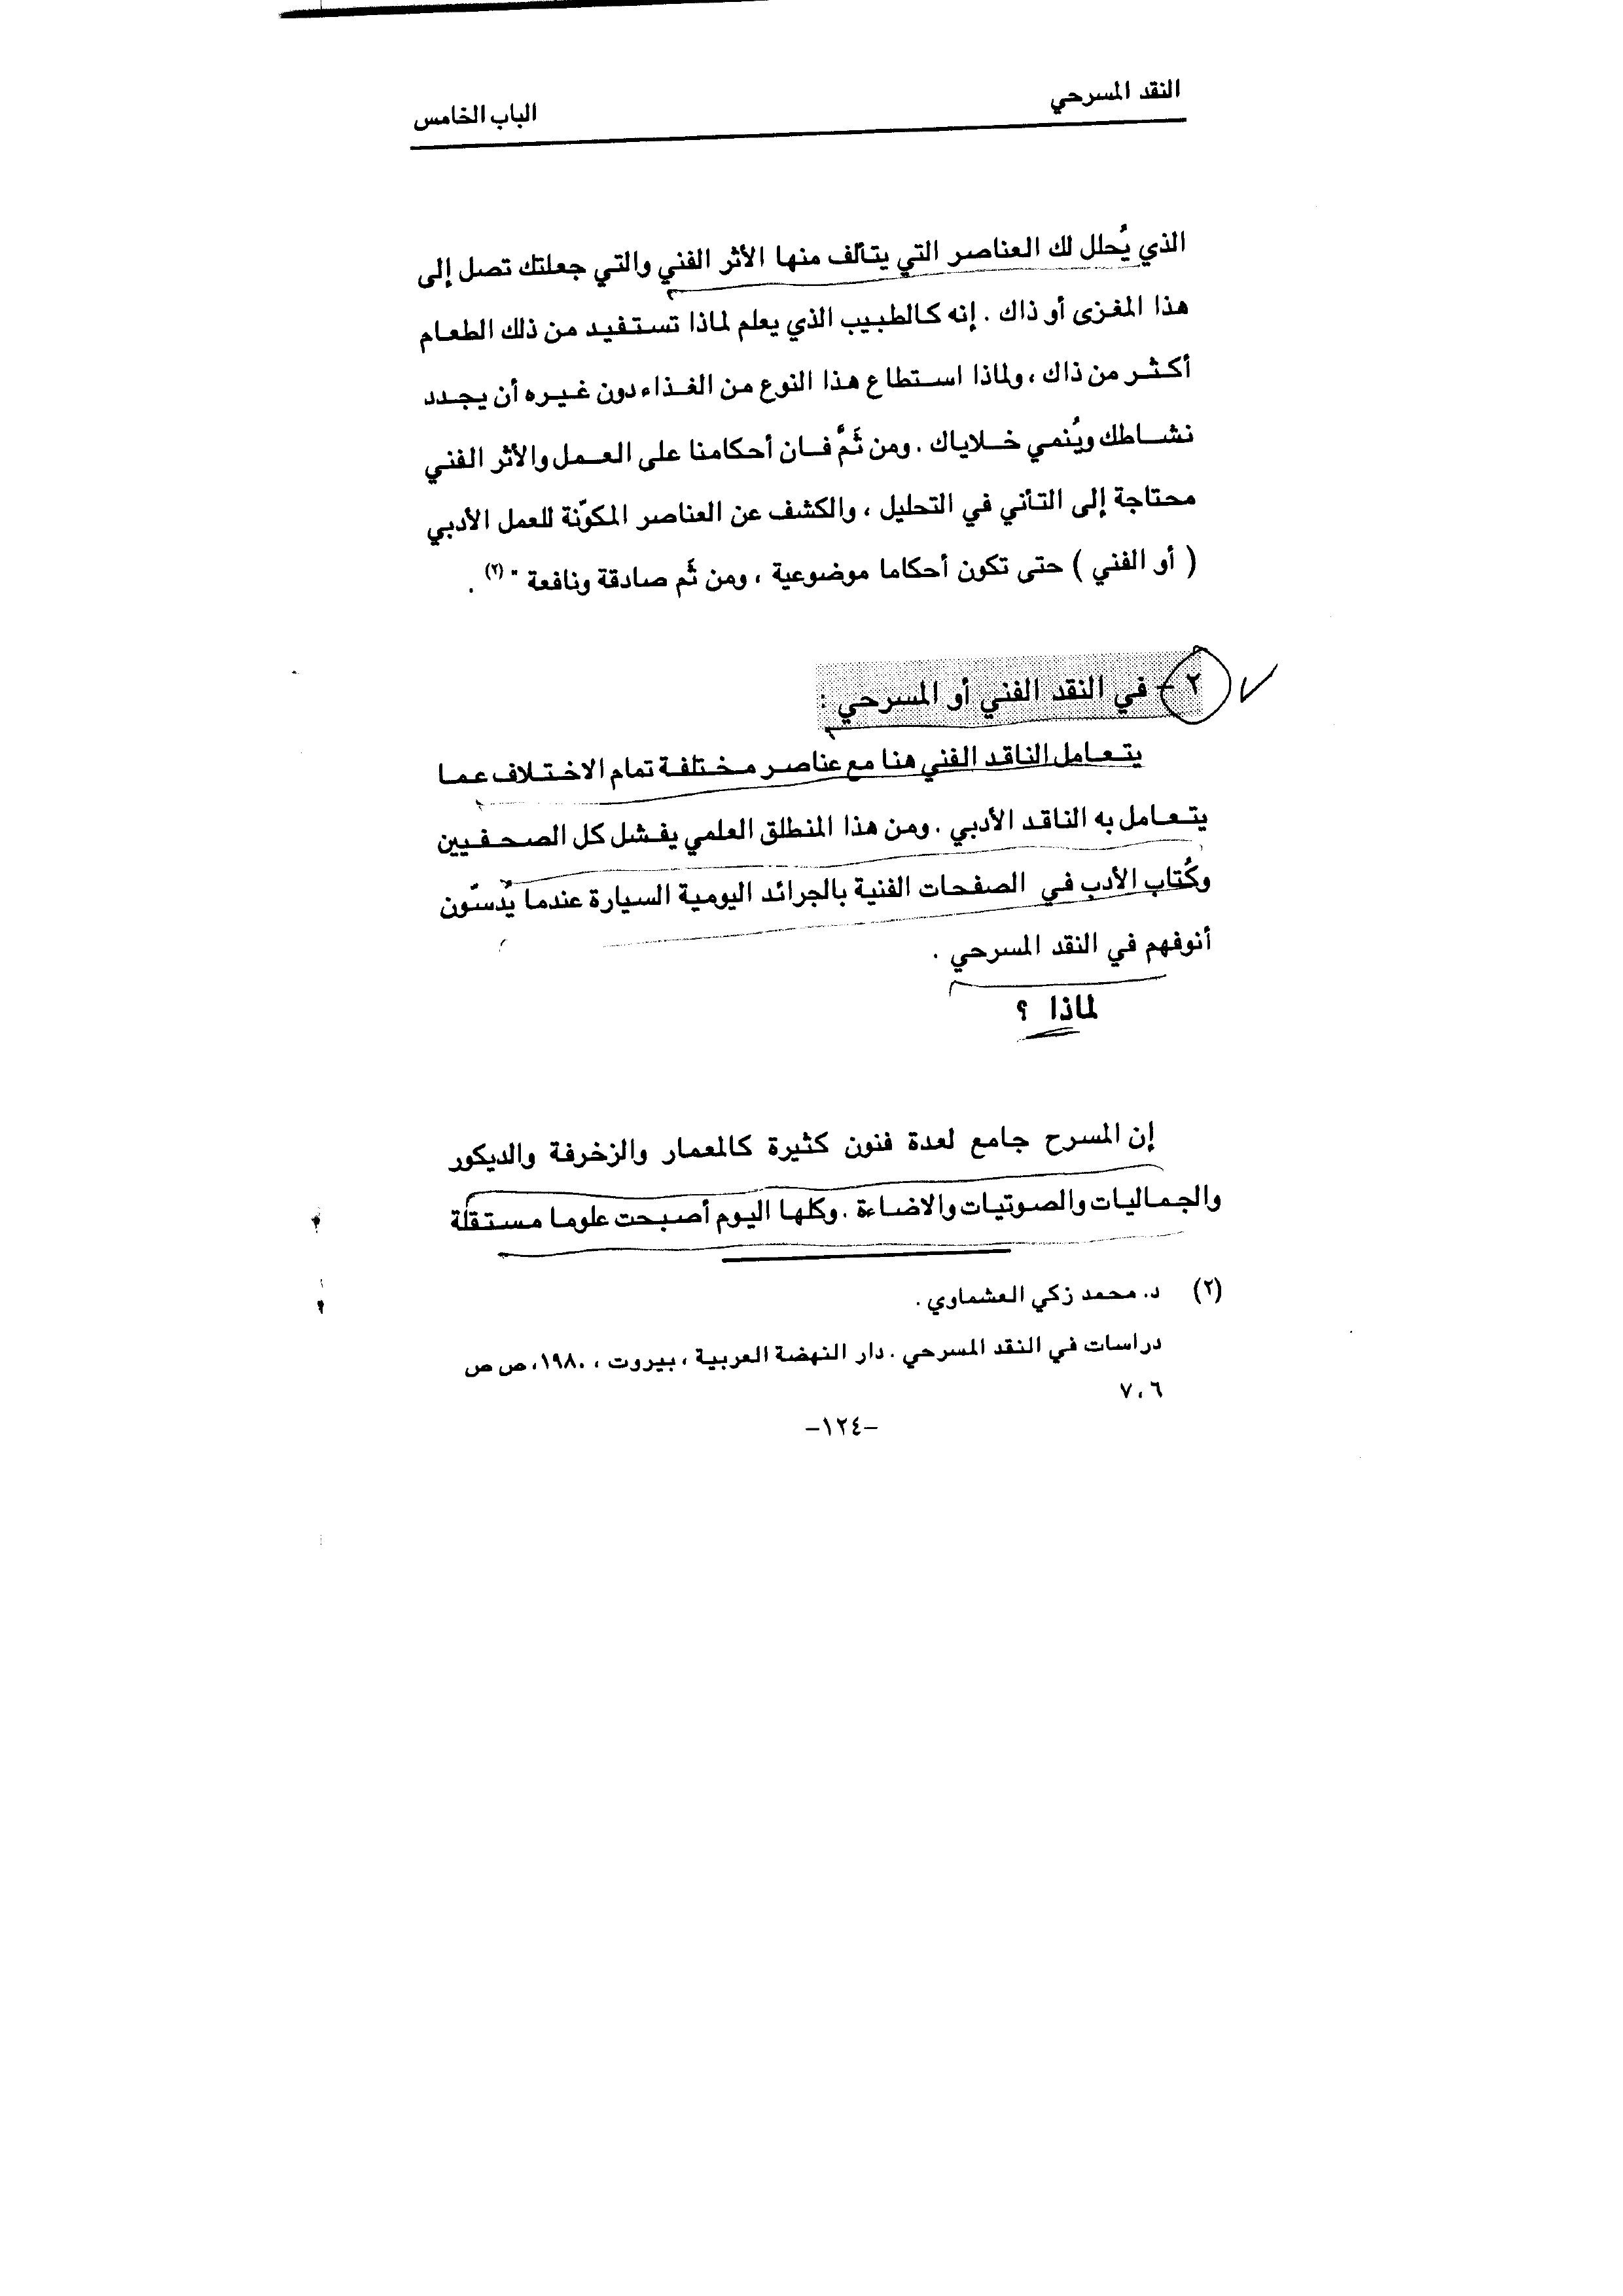 النقد المسرحي
الباب الخامس
الذي يُحلل لك العناصر التي يتألف منها الأثر الفني والتي جعلتك تصل إلى
هذا المغزى أو ذاك . إنه كالطبيب الذي يعلم لماذا تستفيد من ذلك الطعام
أكثر من ذاك ، ولماذا استطاع هذا النوع من الغذاء دون غيره أن يجدد
نشاطك ويُنمي خلاياك . ومن ثَمَّ فان أحكامنا على العمل والأثر الفني
محتاجة إلى التأني في التحليل ، والكشف عن العناصر المكوّنة للعمل الأدبي
( أو الفني ) حتى تكون أحكاما موضوعية ، ومن ثَم صادقة ونافعة " (٢) .
٢ – في النقد الفني أو المسرحي :
يتعامل الناقد الفني هنا مع عناصر مختلفة تمام الاختلاف عما
يتعامل به الناقد الأدبي . ومن هذا المنطلق العلمي يفشل كل الصحفيين
وكُتاب الأدب في الصفحات الفنية بالجرائد اليومية السيارة عندما يدُسّون
أنوفهم في النقد المسرحي .
لماذا ؟
إن المسرح جامع لعدة فنون كثيرة كالمعمار والزخرفة والديكور
والجماليات والصوتيات والاضاءة . وكلها اليوم أصبحت علوما مستقلة
(٢) د. محمد زكي العشماوي .
دراسات في النقد المسرحي . دار النهضة العربية ، بيروت ، ١٩٨٠، ص ص
٦ ، ٧
–١٢٤–